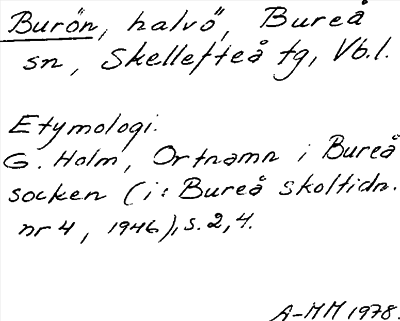 Burön, halvö, Bureå
sn, Skellefteå tg, Vb.l.
Etymologi.
G. Holm, Ortnamn i Bureå
socken (i: Bureå skoltidn.
nr 4, 1946), s. 2, 4.
A-MM 1978.